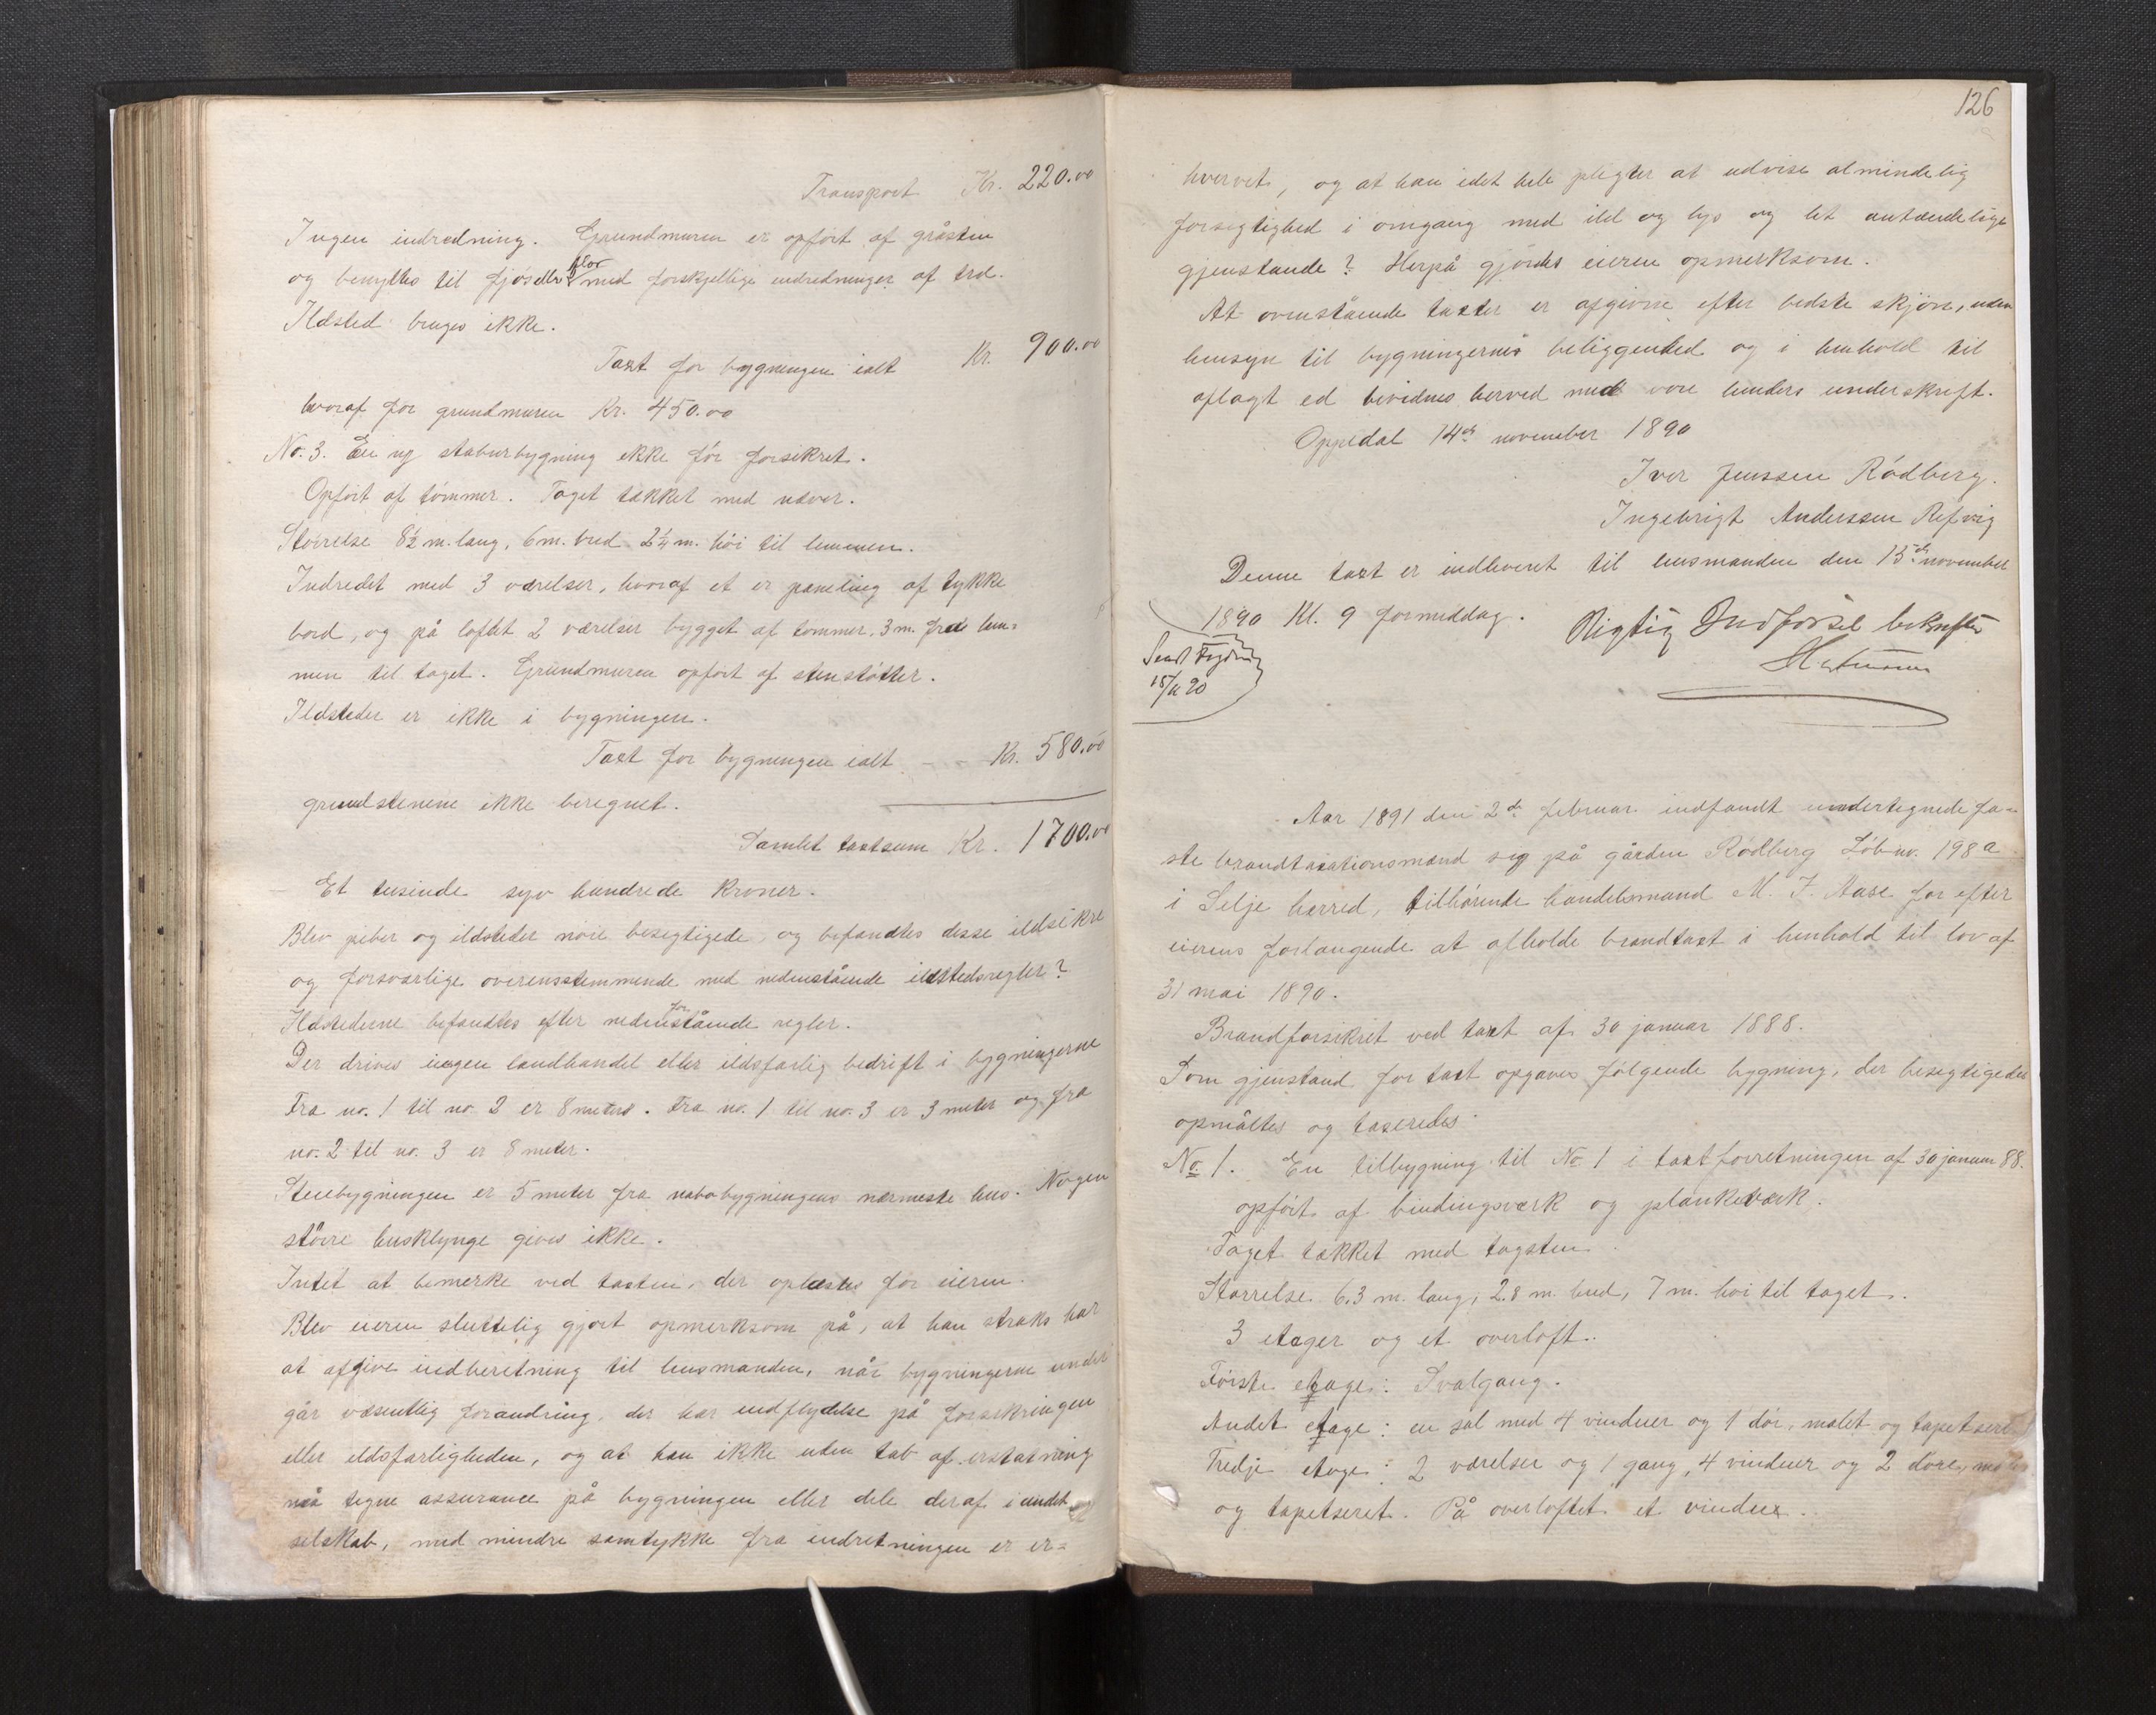 Transport Kr. 220.00
Ingen indredning. Grundmuren er opført af gråsten
og benyttes til fjøs eller flor med forskjellige indredninger af træ.
Ildsted bruges ikke.
Taxt for bygningen ialt Kr. 900.00
hvoraf for grundmuren Kr. 450.00
No. 3. En ny staburbygning ikke før forsikret.
Opført af tømmer. Taget tækket med næver.
Størrelse 8½ m. lang, 6 m. bred 2¼ m. høi til lemmen.
Indredet med 3 værelser, hvoraf et er paneling af tykke
bord, og på loftet 2 værelser bygget af tømmer, 3 m. fra lem=
men til taget. Grundmuren opført af stenstøtter.
Ildsteder er ikke i bygningen.
Taxt for bygningen ialt - - Kr. 580.00
grundstenene ikke beregnet.
Samlet taxtsum Kr. 1700.00
Et tusinde syv hundrede kroner.
Blev piber og ildsteder nøie besigtigede, og befandtes disse ildsikre
og forsvarlige overensstemmende med nedenstående ildstedsregler?
Ildstederne befandtes efter nedenforstående regler.
Der drives ingen landhandel eller ildsfarlig bedrift i bygningerne
Fra no. 1 til no. 2 er 8 meters. Fra no. 1 til no. 3 er 3 meter og fra
no. 2 til no. 3 er 8 meter.
Stuebygningen er 5 meter fra nabobygningens nærmeste hus. Nogen
større husklynge gives ikke.
Intet at bemerke ved taxten, der oplæstes for eieren.
Blev eieren sluttelig gjort opmerksom på, at han straks har
at afgive indberetning til lensmanden, når bygningerne under
går væsentlig forandring, der har indflydelse på forsikringen
eller ildsfarligheden, og at han ikke uden tab af erstatning
må tegne assurance på bygningen eller dele deraf i andet
selskab, med mindre samtykke fra indretningen er er=
126
hvervet, og at han idet hele pligter at udvise almindelig
forsigtighed i omgang med ild og lys og let antændelige
gjenstande? Herpå gjordes eieren opmerksom.
At ovenstående taxter er afgivne efter bedste skjøn, uden
hensyn til bygningernes beliggenhed og i henhold til
aflagt ed bevidnes herved med vore hænders underskrift.
Oppedal 14de november 1890
Iver Jenssen Rødberg.
Ingebrigt Anderssen Refvig
Denne taxt er indleveret til lensmanden den 15de november
1890 Kl. 9 formiddag. Rigtig Indførsel bekræftes
Sendt Fogden
15/11 90
Aar 1891 den 2de februar indfandt undertegnede fa=
ste brandtaxationsmænd seg på gården Rødberg Løbno. 198a
i Selje herred, tilhørende handelsmand M. J. Aase for efter
eierens forlangende at afholde brandtaxt i henhold til lov af
31 mai 1890.
Brandforsikret ved taxt af 30 januar 1888.
Som gjenstand for taxt opgaves følgende bygning, der besigtigedes
opmåltes og taxeredes.
No 1. En tilbygning til No 1 i taxtforretningen af 30 januar 88.
opført af bindingsverk og plankeverk.
Taget tækket med tagsten.
Størrelse 6.3 m. lang, 2.8 m. bred, 7 m. høi til taget.
3 etager og et overloft.
Første etage: Svalgang.
Andet etage: en sal med 4 vinduer og 1 dør, malet og tapetseret
Tredje etage: 2 værelser og 1 gang, 4 vinduer og 2 døre, malet
og tapetseret. På overloftet et vindue.